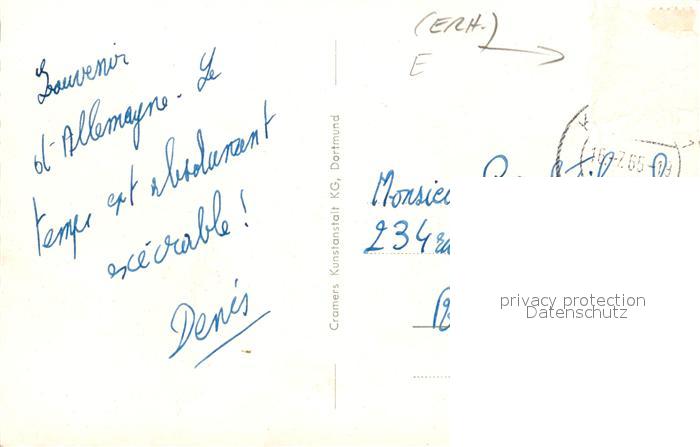 Souvenir
d'Allemagne. Le
temps est absolument
exécrable!
Denis
Cramers Kunstanstalt KG, Dortmund
(ERH.)
E
Monsieu
234
privacy protection
Datenschutz